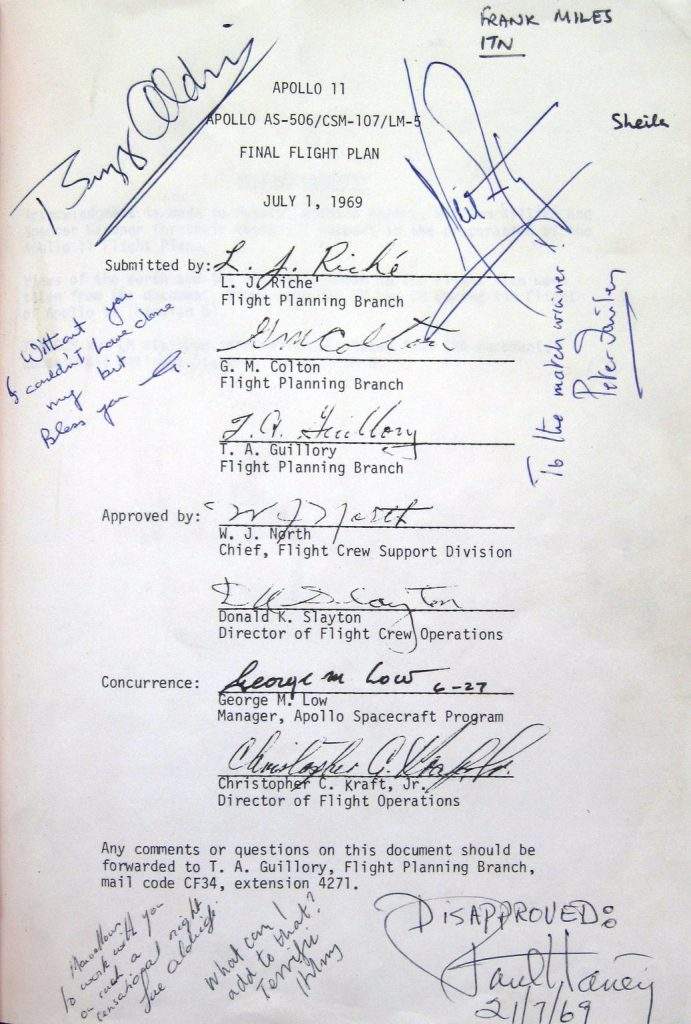 FRANK MILES
ITN
Buzz Aldrin
Sheila
APOLLO 11
APOLLO AS-506/CSM-107/LM-5
FINAL FLIGHT PLAN
JULY 1, 1969
Submitted by: L. J. Riché
L. J. Riche'
Flight Planning Branch
Without you
I couldn't have done
my bit
Bless you
G M Colton
G. M. Colton
Flight Planning Branch
To the match winner!
Peter
T. A. Guillory
T. A. Guillory
Flight Planning Branch
Approved by: W J North
W. J. North
Chief, Flight Crew Support Division
D K Slayton
Donald K. Slayton
Director of Flight Crew Operations
Concurrence: George M Low 6-27
George M. Low
Manager, Apollo Spacecraft Program
Christopher C. Kraft, Jr.
Christopher C. Kraft, Jr.
Director of Flight Operations
Any comments or questions on this document should be
forwarded to T. A. Guillory, Flight Planning Branch,
mail code CF34, extension 4271.
Marvellous
to work with you
on such a
sensational night
What can I
add to that?
Terrific
DISAPPROVED:
Paul Haney
21/7/69